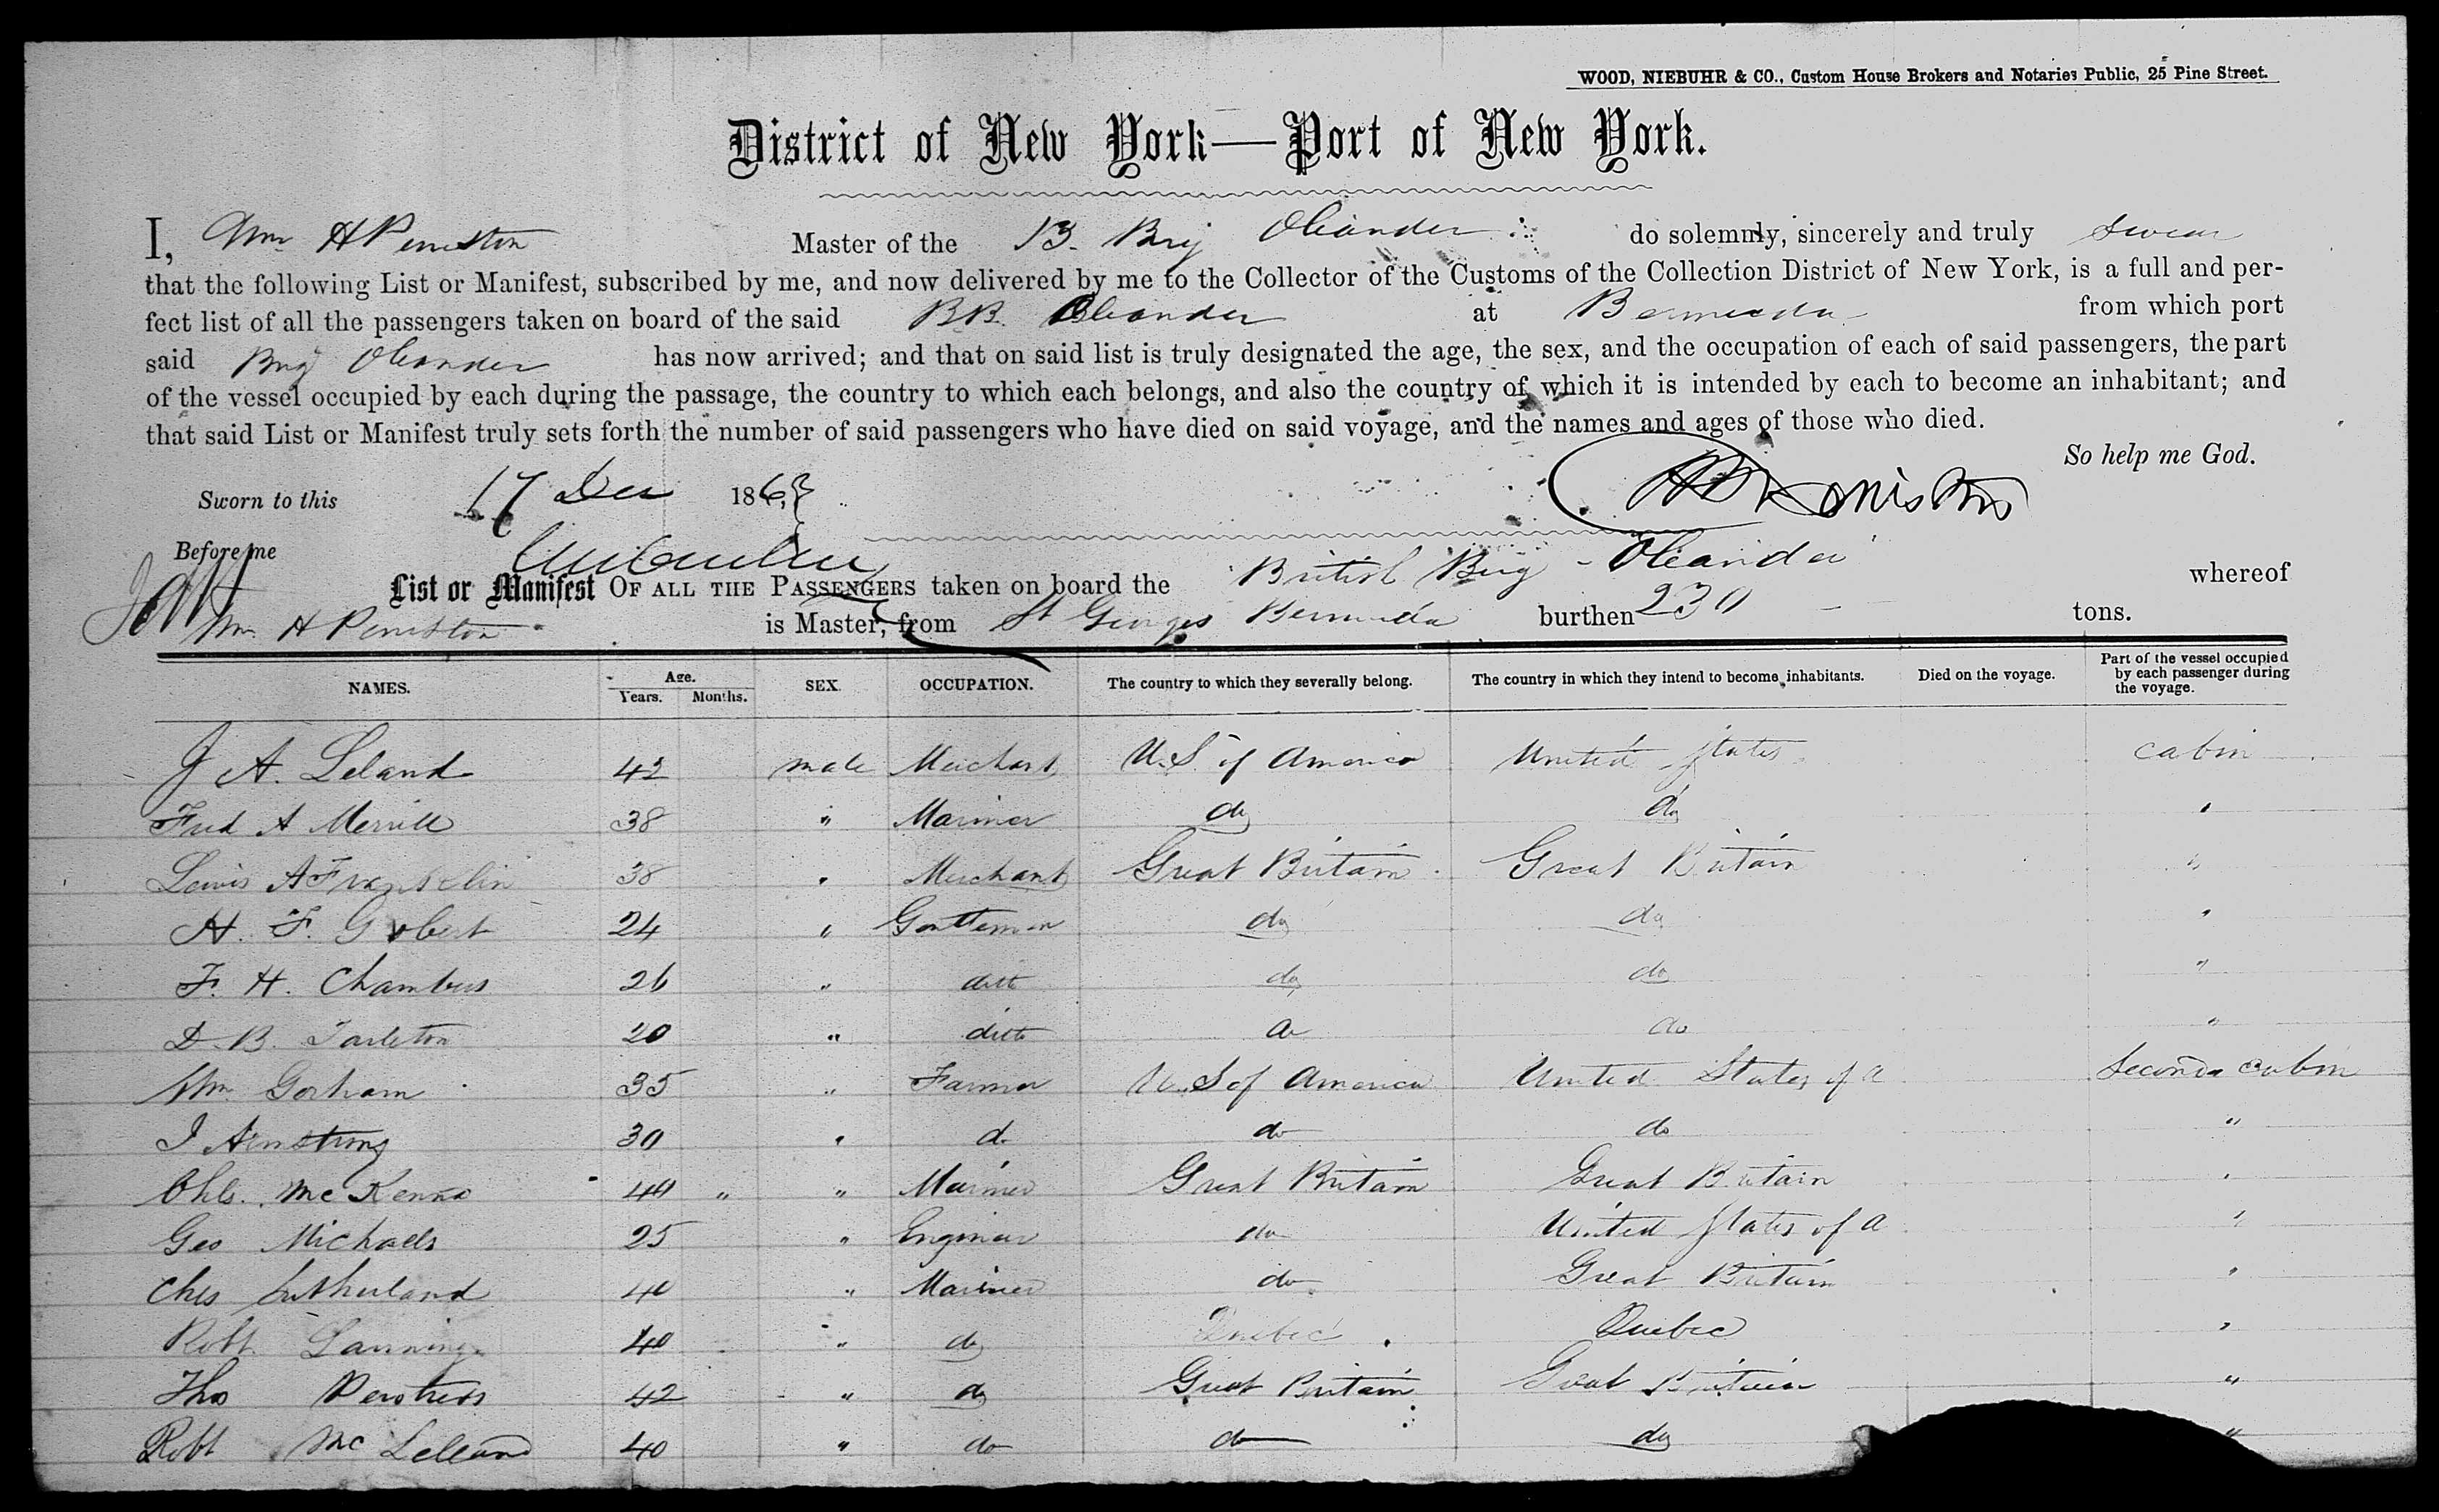 WOOD, NIEBUHR & CO., Custom House Brokers and Notaries Public, 25 Pine Street.
District of New York—Port of New York.
I, Wm H Peniston Master of the B. Brig Oleander do solemnly, sincerely and truly swear
that the following List or Manifest, subscribed by me, and now delivered by me to the Collector of the Customs of the Collection District of New York, is a full and per-
fect list of all the passengers taken on board of the said BB. Oleander at Bermuda from which port
said Brig Oleander has now arrived; and that on said list is truly designated the age, the sex, and the occupation of each of said passengers, the part
of the vessel occupied by each during the passage, the country to which each belongs, and also the country of which it is intended by each to become an inhabitant; and
that said List or Manifest truly sets forth the number of said passengers who have died on said voyage, and the names and ages of those who died.
So help me God.
Sworn to this 17 Dec 1863
Before me
List or Manifest OF ALL THE PASSENGERS taken on board the British Brig - Oleander whereof
Wm H Peniston is Master, from St Georges Bermuda burthen 230 tons.
NAMES. Age. Years. Months. SEX. OCCUPATION. The country to which they severally belong. The country in which they intend to become inhabitants. Died on the voyage. Part of the vessel occupied by each passenger during the voyage.
J A. Leland 42 male Merchant U.S. of America United States cabin
Fred A Merrill 38 " Mariner do do "
Lewis A Franklin 38 " Merchant Great Britain Great Britain "
H. F. Gobert 24 " Gentleman do do "
F. H. Chambers 26 " ditto do do "
D. B. Tarleton 20 " ditto do do "
Wm Gorham 35 " Farmer U.S of America United States of A Second cabin
J Armstrong 30 " do do do "
Chls. McKenna 40 " " Mariner Great Britain Great Britain "
Geo Michaels 25 " Engineer do United States of A "
Chls Sutherland 40 " Mariner do Great Britain "
Robt Lanning 40 " do Quebec Quebec "
Tho 42 " do Great Britain Great Britain "
Robt McLelland 40 " do do do "